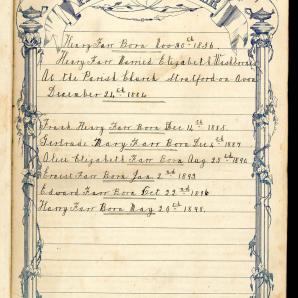 Henry Farr Born Nov 30th 1856.
Henry Farr Married Elizabeth Washbrook
At the Parish Church Stratford on Avon
December 24th 1884
Frank Henry Farr Born Dec 14th 1885.
Gertrude Mary Farr Born Dec 6th 1887
Alice Elizabeth Farr Born Aug 25th 1890
Ernest Farr Born Jan 2nd 1893
Edward Farr Born Oct 22nd 1896
Harry Farr Born May 20th 1898.